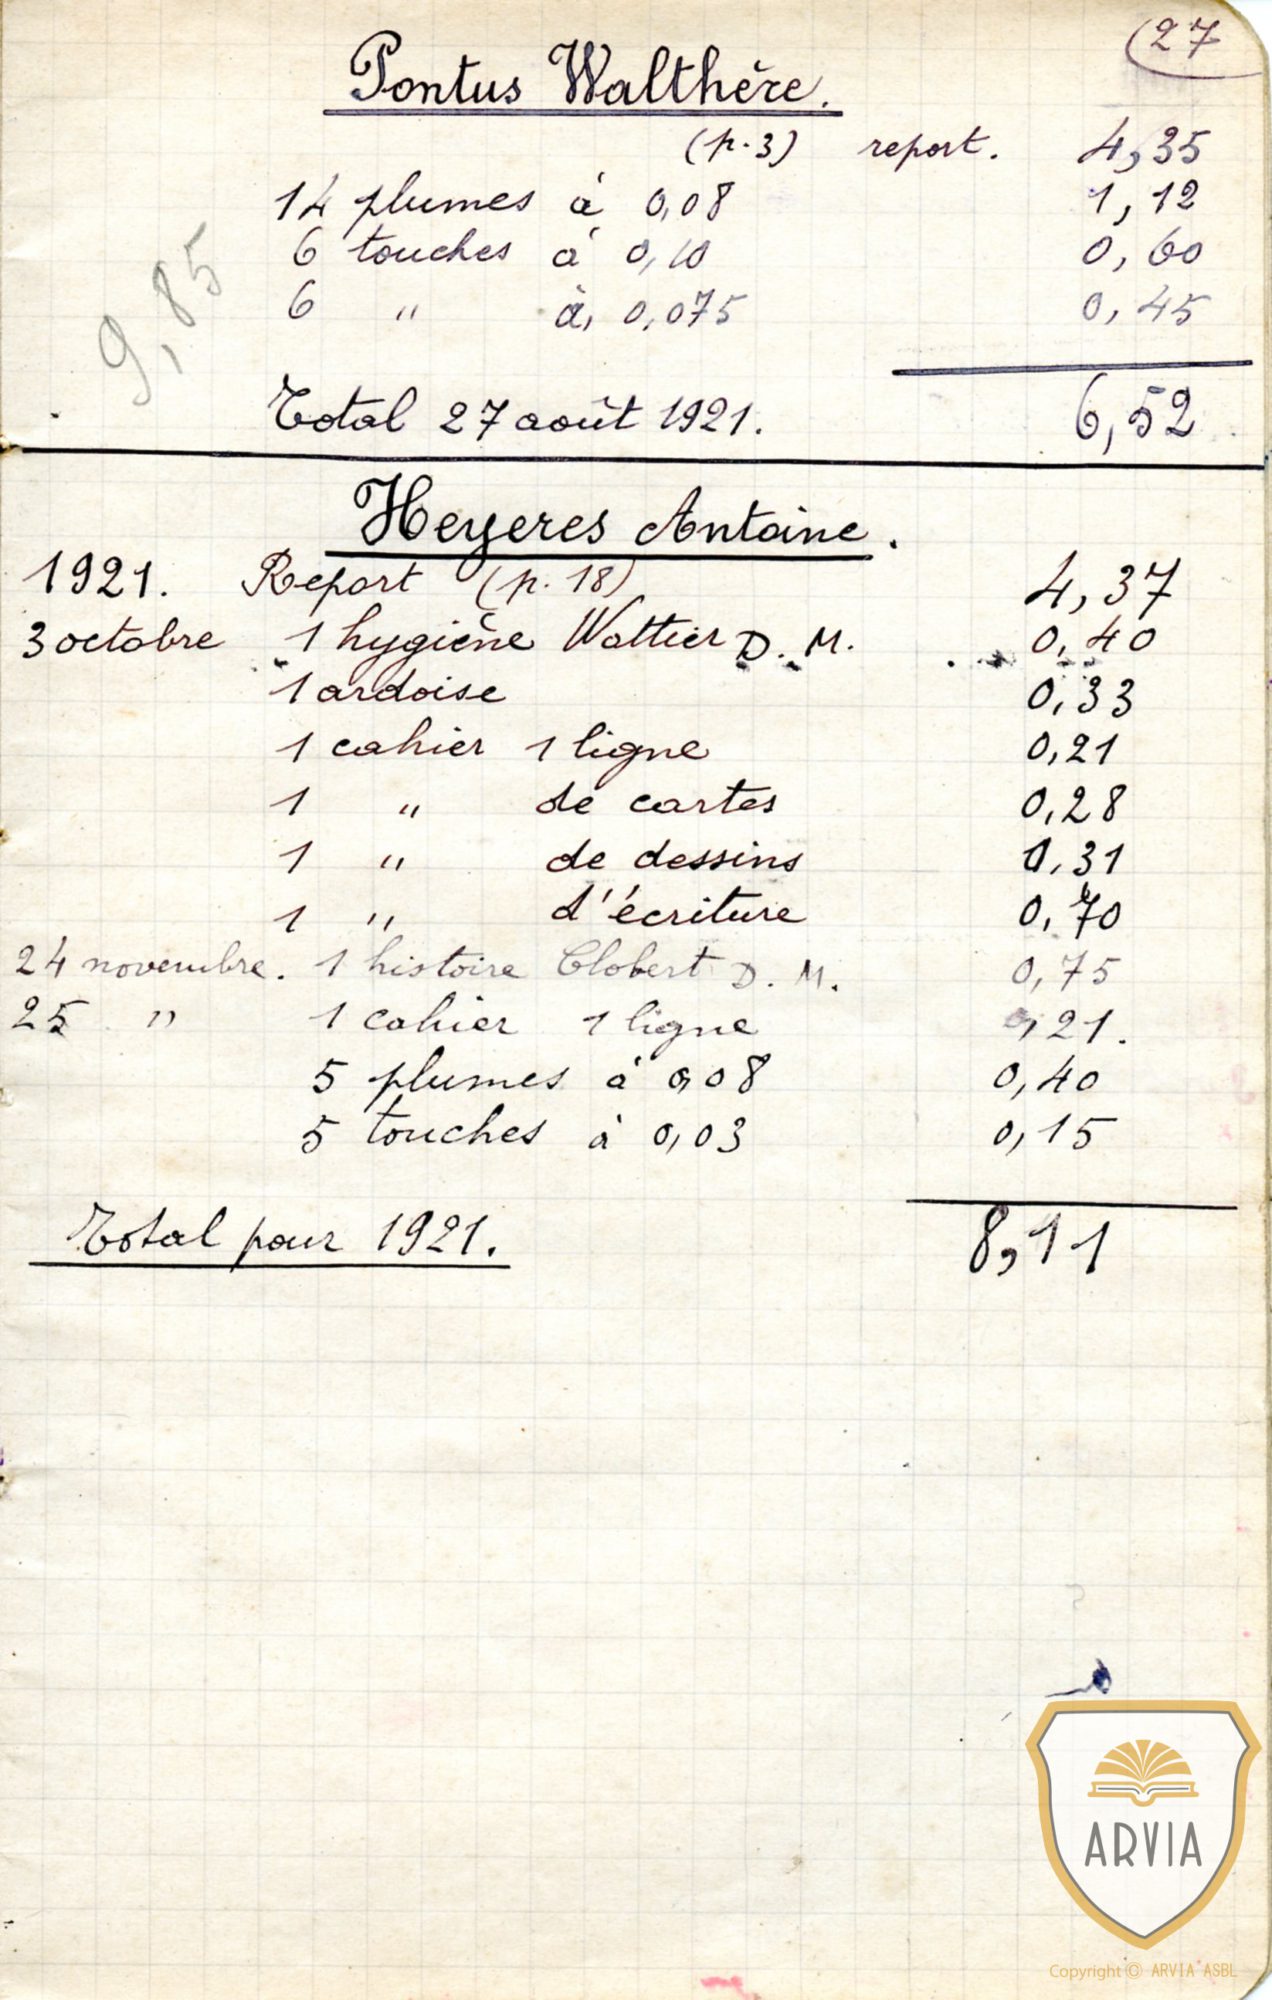 (27
Pontus Walthère.
(p.3) report. 4,35
14 plumes à 0,08 1,12
6 touches à 0,10 0,60
6 " à, 0,075 0,45
9,85
Total 27 août 1921. 6,52
Heyeres Antoine.
1921. Report (p. 18) 4,37
3 octobre 1 hygiène Wattier D. M. 0,40
1 ardoise 0,33
1 cahier 1 ligne 0,21
1 " de cartes 0,28
1 " de dessins 0,31
1 " d'écriture 0,70
24 novembre. 1 histoire Clobert D. M. 0,75
25 " 1 cahier 1 ligne 0,21.
5 plumes à 0,08 0,40
5 touches à 0,03 0,15
Total pour 1921. 8,11
ARVIA
Copyright © ARVIA ASBL